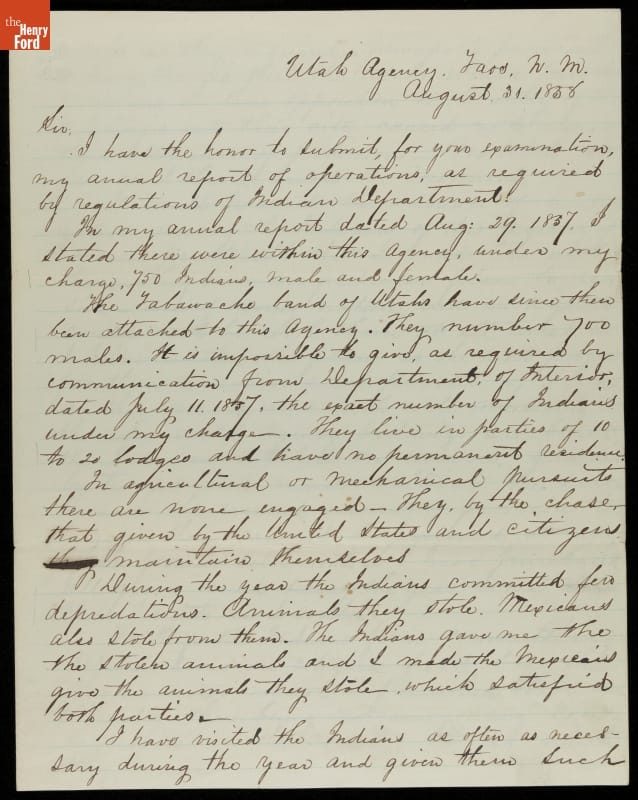 the
Henry
Ford
Utah Agency. Taos, N. M.
August. 31. 1858
Sir,
I have the honor to submit, for your examination,
my annual report of operations, as required
by regulations of Indian Department.
In my annual report dated Aug: 29. 1857. I
stated there were within this Agency, under my
charge, 750 Indians, male and female.
The Tabawache band of Utahs have since then
been attached to this Agency. They number 700
males. It is impossible to give, as required by
communication from Department, of Interior,
dated July 11. 1857, the exact number of Indians
under my charge. They live in parties of 10
to 20 lodges and have no permanent residence.
In agricultural or mechanical pursuits
there are none engaged - They, by the chase,
that given by the United States and citizens
maintain themselves
During the year the Indians committed few
depredations. Animals they stole. Mexicans
also stole from them. The Indians gave me the
the stolen animals and I made the Mexicans
give the animals they stole, which satisfied
both parties.
I have visited the Indians as often as neces-
sary during the year and given them such